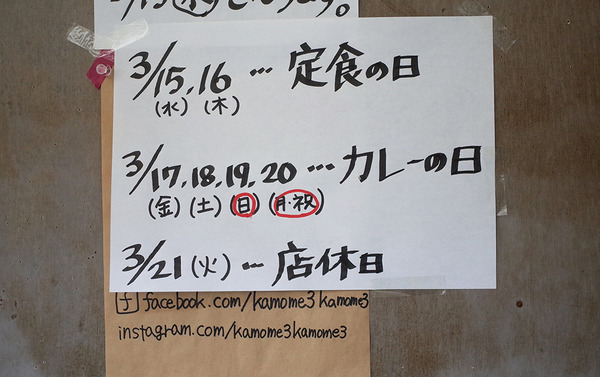 3/15,16…定食の日
(水)(木)
3/17,18,19,20…カレーの日
(金)(土)(日)(月・祝)
3/21(火)…店休日
facebook.com/kamome3kamome3
instagram.com/kamome3kamome3